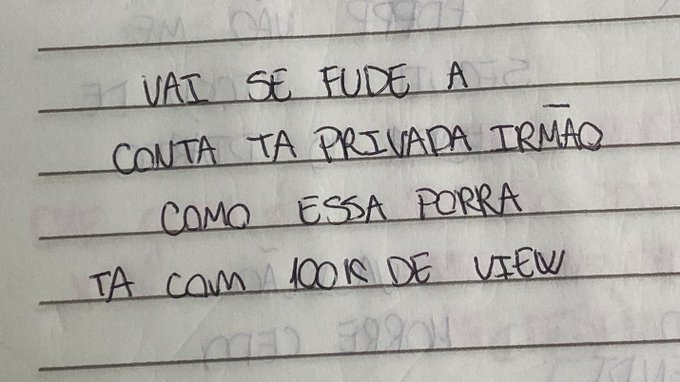 VAI SE FUDE A
CONTA TA PRIVADA IRMÃO
COMO ESSA PORRA
TA COM 100K DE VIEW